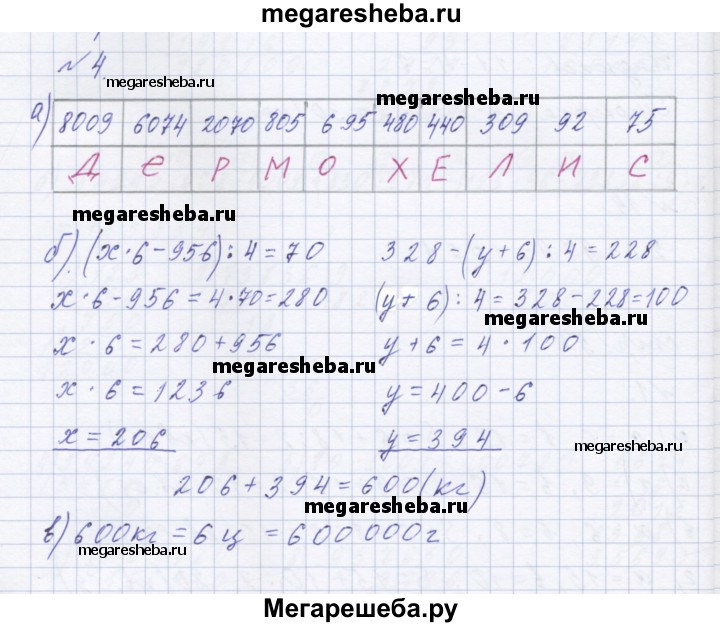 megaresheba.ru
№ 4
megaresheba.ru
а) 8009 6074 2070 805 695 480 440 309 92 75
megaresheba.ru
Д Е Р М О Х Е Л И С
megaresheba.ru
б) (х·6-956):4=70 328-(у+6):4=228
х·6-956=4·70=280 (у+6):4=328-228=100
megaresheba.ru
х·6=280+956 у+6=4·100
megaresheba.ru
х·6=1236 у=400-6
х=206 у=394
megaresheba.ru
206+394=600(кг)
megaresheba.ru
в) 600кг=6ц=600 000г
megaresheba.ru
Мегарешеба.ру